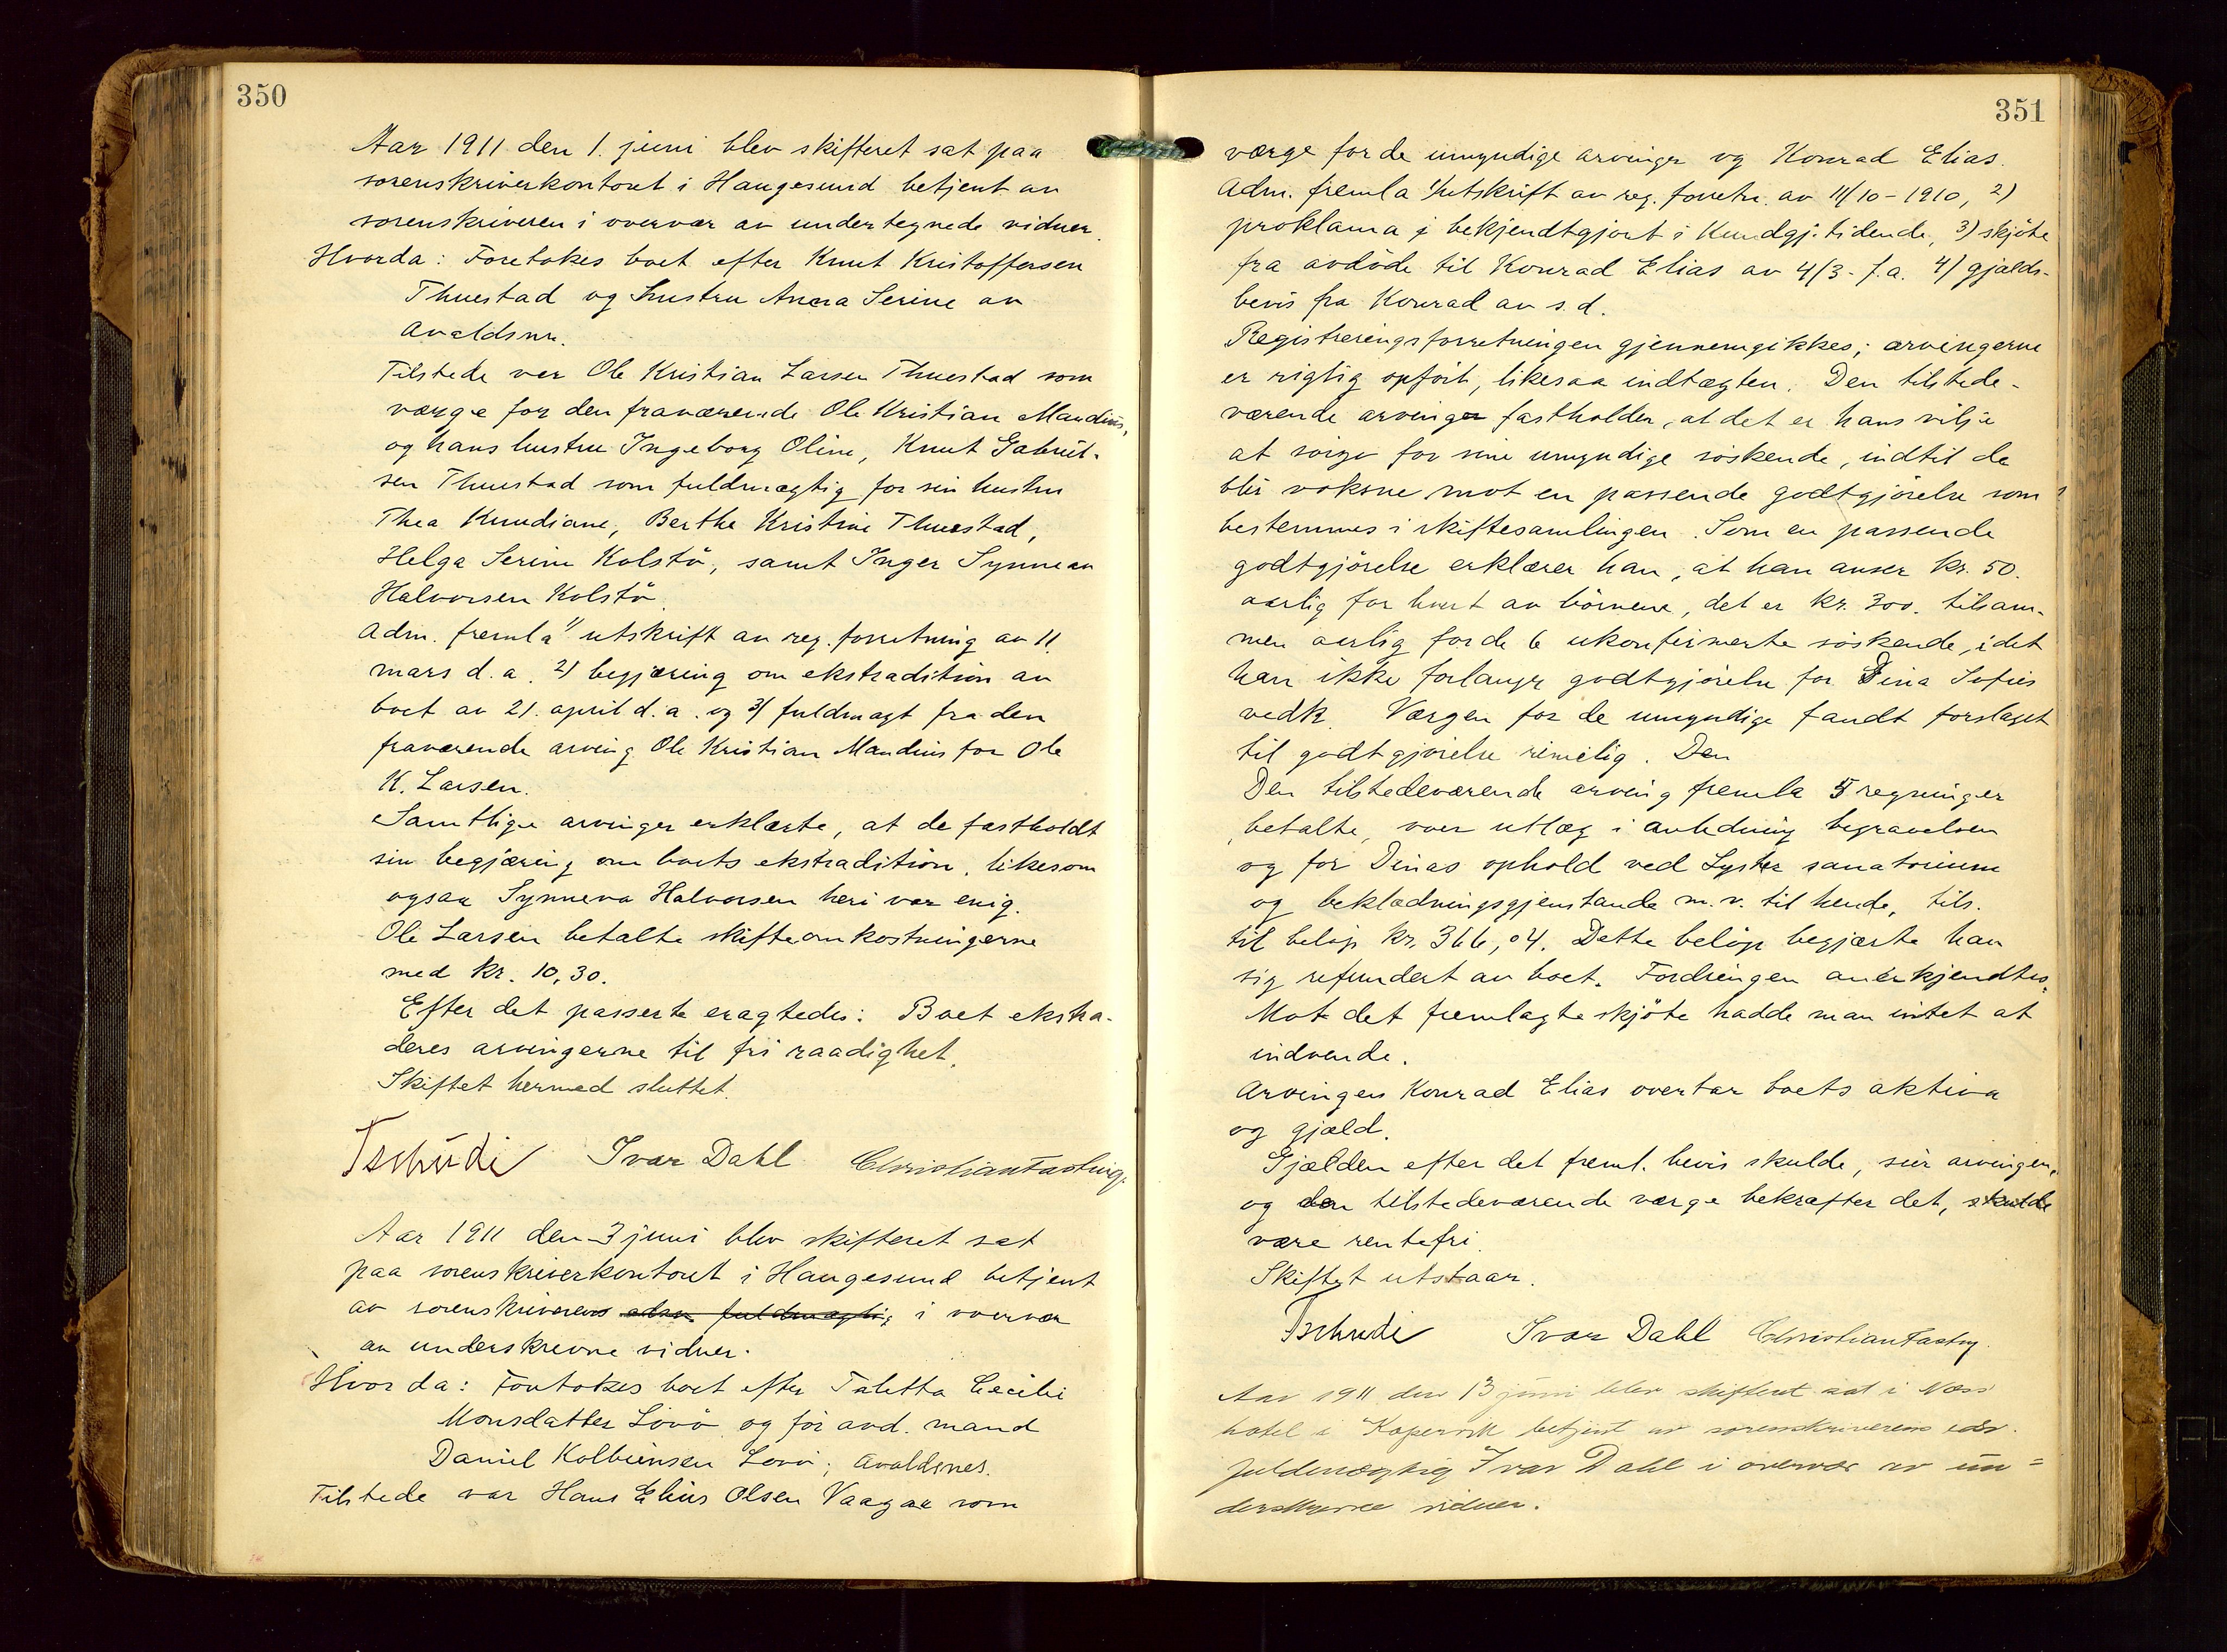 350
Aar 1911 den 1. juni blev skifteret sat paa
sorenskriverkontoret i Haugesund betjent av
sorenskriveren i overvær av undertegnede vidner.
Hvorda: Foretokes boet efter Knut Kristoffersen
Thuestad og hustru Anna Serine av
Avaldsnes.
Tilstede var Ole Kristian Larsen Thuestad som
værge for den fraværende Ole Kristian Maudius,
og hans hustru Ingeborg Oline, Knut Gabriel-
sen Thuestad som fuldmægtig for sin hustru
Thea Knudiane, Berthe Kristine Thuestad,
Helga Serine Kolstö, samt Inger Synneva
Halvorsen Kolstö.
Adm. fremla 1) utskrift av reg. forretning av 11
mars d. a. 2) begjæring om ekstradition av
boet av 21. april d. a. og 3) fuldmagt fra den
fraværende arving Ole Kristian Maudius for Ole
K. Larsen.
Samtlige arvinger erklærte, at de fastholdt
sin begjæring om boets ekstradition, likesom
ogsaa Synneva Halvorsen heri var enig.
Ole Larsen betalte skifteomkostningerne
med kr. 10,30.
Efter det passerte eragtedes: Boet ekstra-
deres arvingerne til fri raadighet.
Skiftet hermed sluttet.
Tschudi Ivar Dahl Christian Fasting.
Aar 1911 den 3 juni blev skifteret sat
paa sorenskriverkontoret i Haugesund betjent
av sorenskriverens edsv. fuldmægtig i overvær
av underskrevne vidner.
Hvorda: Foretokes boet efter Taletta Cecilie
Monsdatter Lovö og för avd. mand
Daniel Kolbeinsen Lovö, Avaldsnes.
Tilstede var Hans Elius Olsen Vaagae som
351
værge for de umyndige arvinger og Konrad Elias.
Adm. fremla 1) utskrift av reg. forretn. av 11/10-1910, 2)
proklama i bekjendtgjort i Kundgj. tidende, 3) skjöte
fra avdöde til Konrad Elias av 4/3- f. a. 4) gjælds-
bevis fra Konrad av s. d.
Registreringsforretningen gjennemgikkes; arvingerne
er rigtig opfört, likesaa indtægten. Den tilstede-
værende arving fastholder, at det er hans vilje
at sörge for sine umyndige söskende, indtil de
blir voksne mot en passende godtgjörelse som
bestemmes i skiftesamlingen. Som en passende
godtgjörelse erklærer han, at han anser kr. 50.
aarlig for hvert av börnene, det er kr. 300. tilsam-
men aarlig for de 6 ukonfirmerte söskende, idet
han ikke forlanger godtgjörelse for Dina Sofies
vedk. Værgen for de umyndige fandt forslaget
til godtgjörelse rimelig. Den
Den tilstedeværende arving fremla 5 regninger
betalte, over utlæg i anledning begravelsen
og for Dinas ophold ved Lyster sanatorium
og beklædningsgjenstande m. v. til hende, tils.
til belöp kr. 366,04. Dette belöp begjærte han
sig refundert av boet. Fordringen anerkjendtes.
Mot det fremlagte skjöte hadde man intet at
indvende.
Arvingen Konrad Elias overtar boets aktiva
og gjæld.
Gjælden efter det freml. bevis skulde, sier arvingen,
og den tilstedeværende værge bekræfter det, skulde
være rentefri.
Skiftet utstaar.
Tschudi Ivar Dahl Christian Fasting.
Aar 1911 den 13 juni blev skifteret sat i Næss
hotel i Kopervik betjent av sorenskriverens edsv.
fuldmægtig Ivar Dahl i overvær av un=
derskrevne vidner.